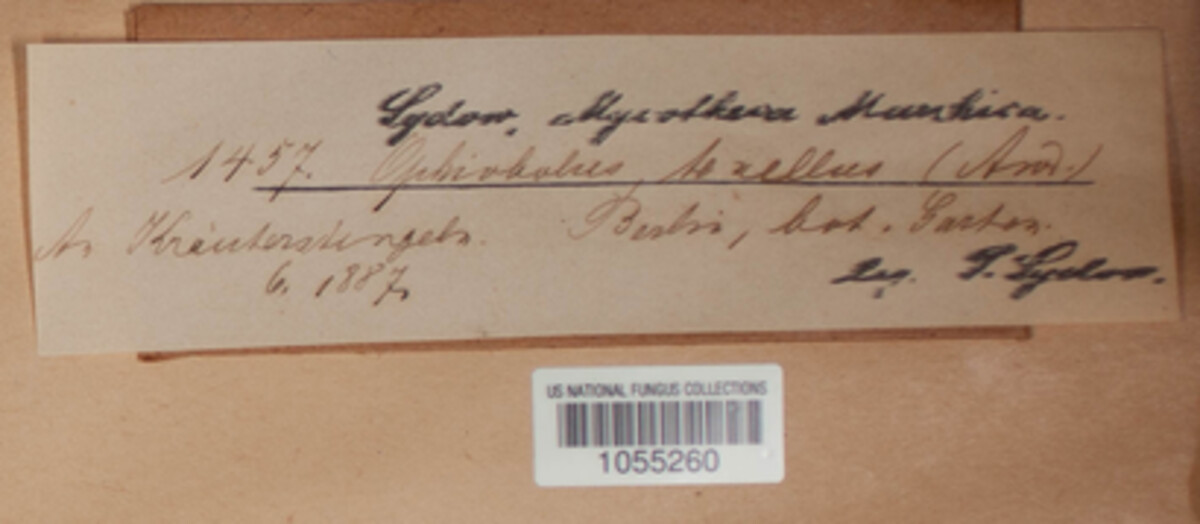 Sydow, Mycotheca Marchica.
1457. Ophiobolus vexellus (Awd.)
An Kräuterstengeln. Berlin, bot. Garten.
6. 1887.
Leg. P. Sydow.
US NATIONAL FUNGUS COLLECTIONS
1055260